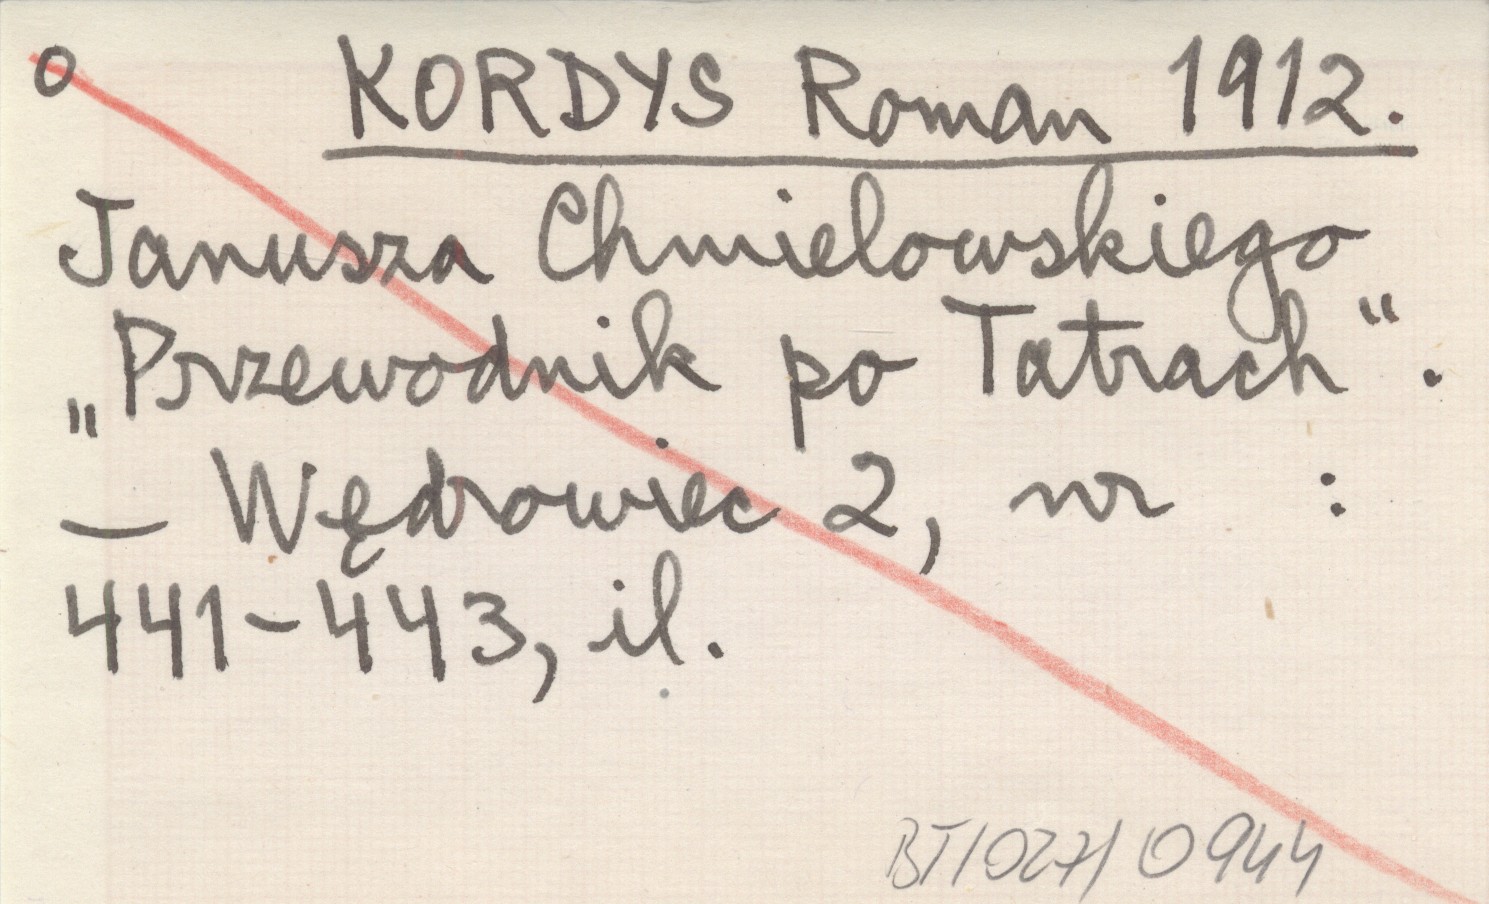 o KORDYS Roman 1912.
Janusza Chmielowskiego
„Przewodnik po Tatrach“.
— Wędrowiec 2, nr :
441-443, il.
BT/027/0944